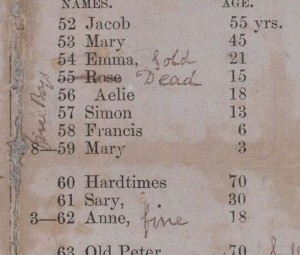 NAMES. AGE.
52 Jacob 55 yrs.
53 Mary 45
54 Emma, Sold 21
55 Rose Dead 15
56 Aelie 18
57 Simon 13
58 Francis 6
8—59 Mary 3
fine Boys
60 Hardtimes 70
61 Sary, 30
3—62 Anne, fine 18
63 Old Peter 70